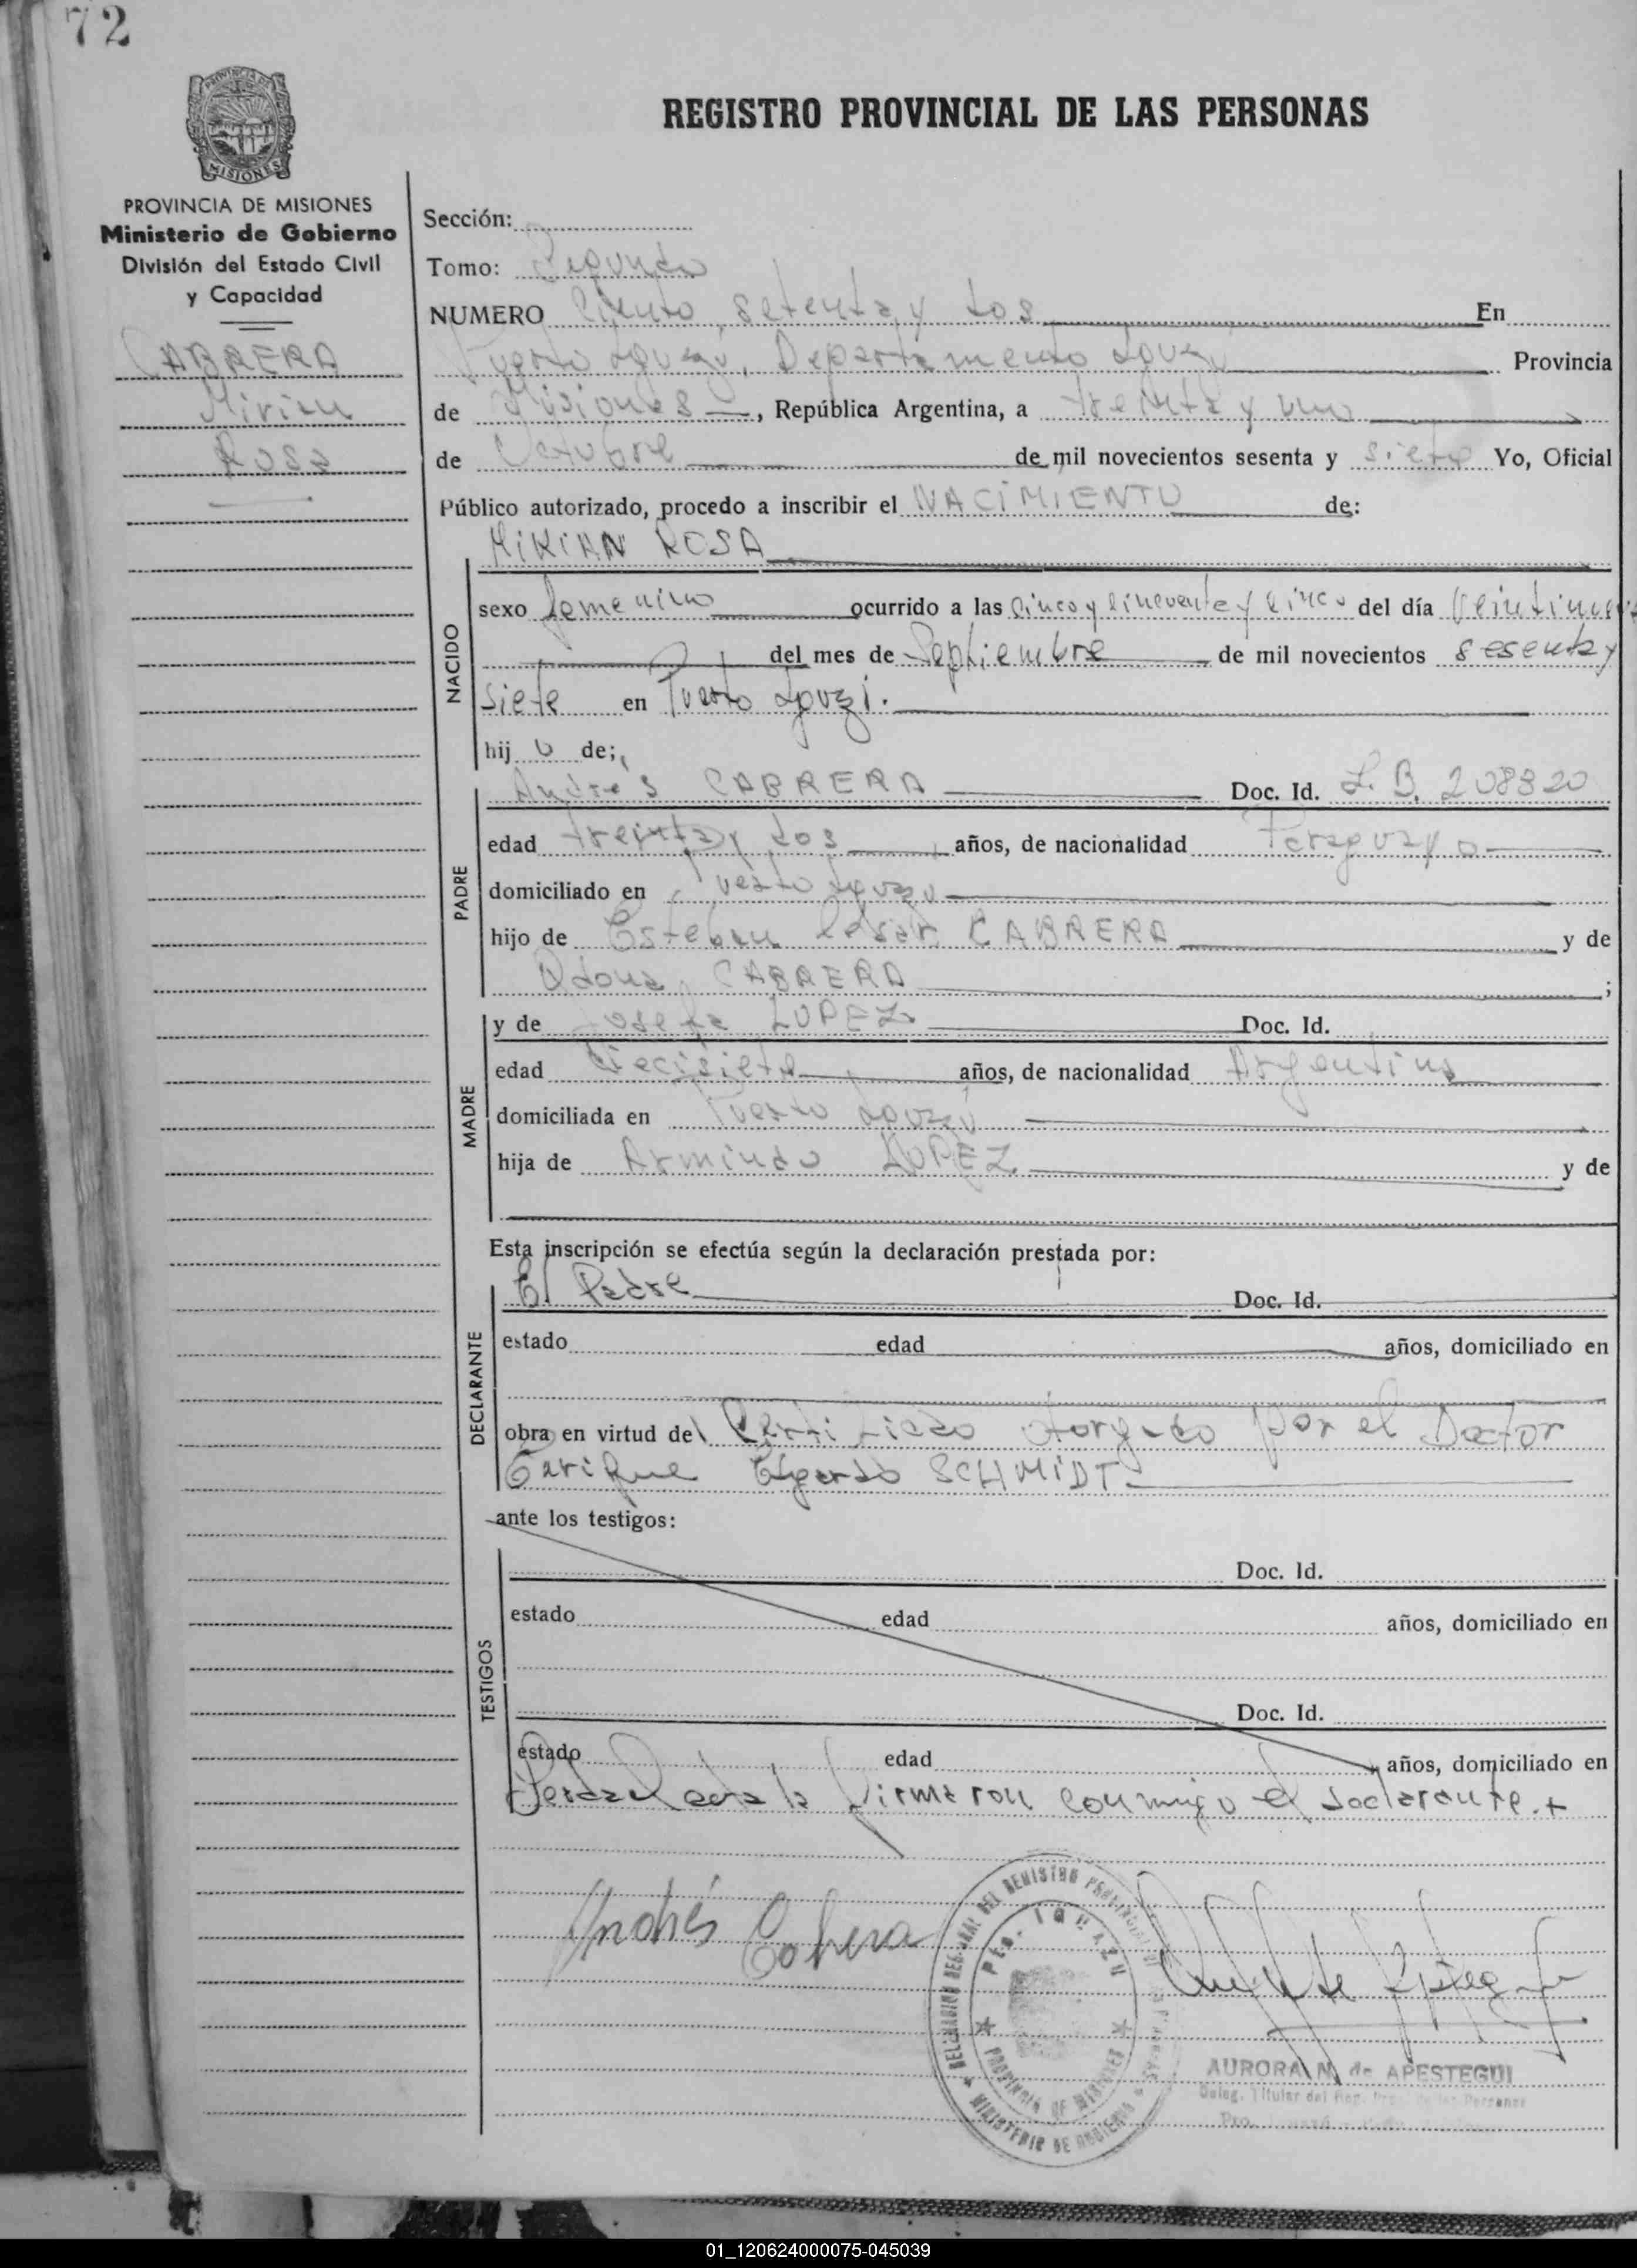 72
PROVINCIA DE
MISIONES
REGISTRO PROVINCIAL DE LAS PERSONAS
PROVINCIA DE MISIONES
Ministerio de Gobierno
División del Estado Civil
y Capacidad
CABRERA
Mirian
Rosa
Sección:
Tomo: Segundo
NUMERO Ciento setenta y dos En
Puerto Iguazú, Departamento Iguazú Provincia
de Misiones, República Argentina, a treinta y uno
de Octubre de mil novecientos sesenta y siete Yo, Oficial
Público autorizado, procedo a inscribir el NACIMIENTO de:
MIRIAN ROSA
NACIDO
sexo femenino ocurrido a las cinco y cincuenta y cinco del día Veintinueve
del mes de Septiembre de mil novecientos sesenta y
siete en Puerto Iguazú.
hij de;
PADRE
Andrés CABRERA Doc. Id. L. B. 208320
edad treinta y dos años, de nacionalidad Paraguayo
domiciliado en Puerto Iguazú
hijo de Esteban Cesar CABRERA y de
CABRERA ;
MADRE
y de Josefa LOPEZ Doc. Id.
edad diecisiete años, de nacionalidad Argentina
domiciliada en Puerto Iguazú
hija de Armindo LOPEZ y de
Esta inscripción se efectúa según la declaración prestada por:
DECLARANTE
El Padre Doc. Id.
estado edad años, domiciliado en
obra en virtud del otorgado por el Doctor
Enrique SCHMIDT
ante los testigos:
TESTIGOS
Doc. Id.
estado edad años, domiciliado en
Doc. Id.
estado edad años, domiciliado en
el acta la firmaron conmigo el declarante.
Andrés Cabrera
DELEGACION REGIONAL DEL REGISTRO PROVINCIAL DE LAS PERSONAS
PTO. IGUAZU
PROVINCIA DE MISIONES
MINISTERIO DE GOBIERNO
AURORA N. de APESTEGUI
Deleg. Titular del Reg. Prov. de las Personas
01_120624000075-045039